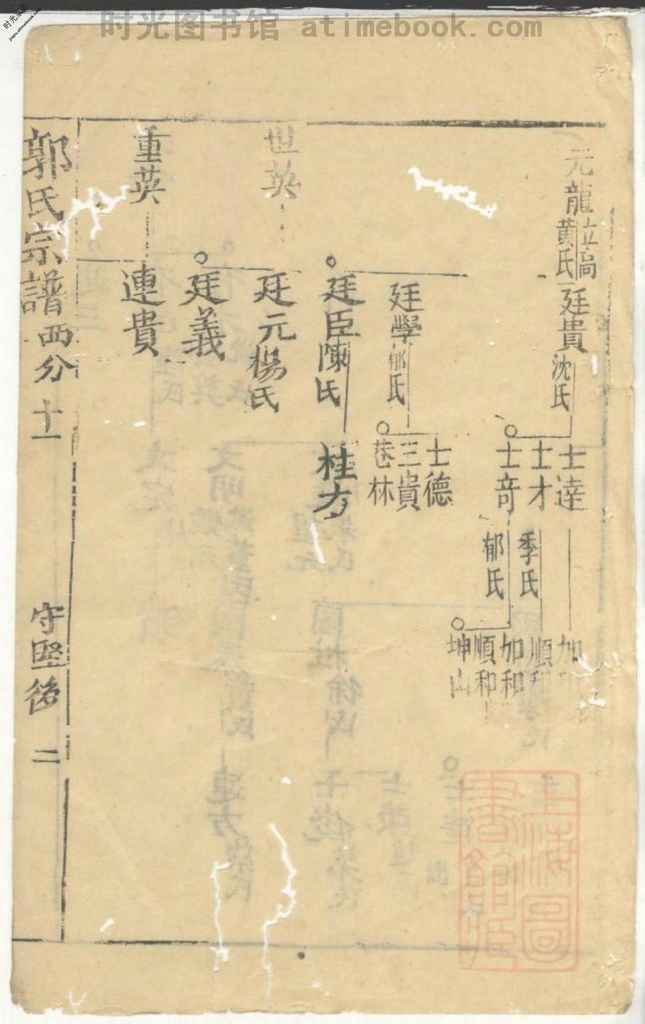 时光图书馆 atimebook.com
元龍
黄氏
廷貴
沈氏
士達
士才
季氏
士奇
郁氏
加
順
加和
順和
坤山
廷學
郁氏
士德
三貴
巷林
世英
廷臣
陳氏
桂方
廷元
楊氏
廷義
重英
連貴
郭氏宗譜
西分
十一
守堅後
二
上海圖書館藏